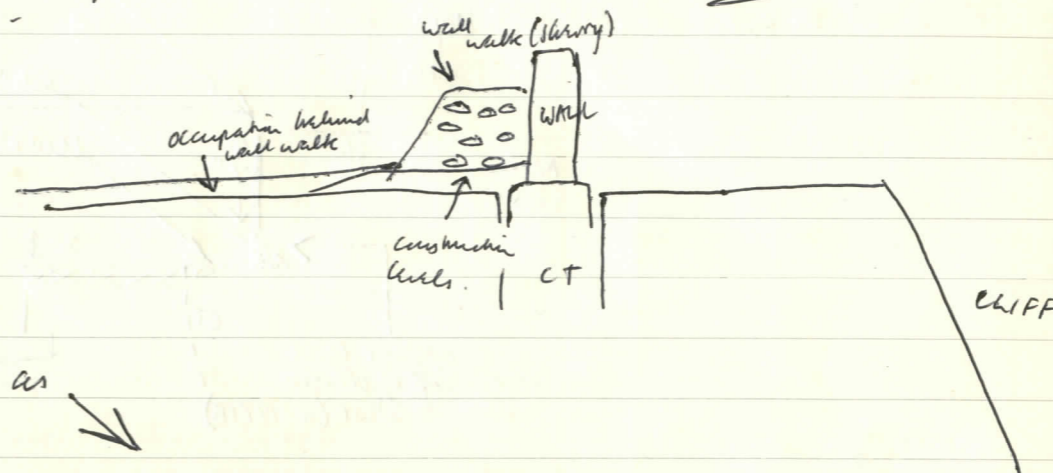 wall
walk (stony)
WALL
occupation behind
wall walk
construction
levels.
CT
CLIFF
as